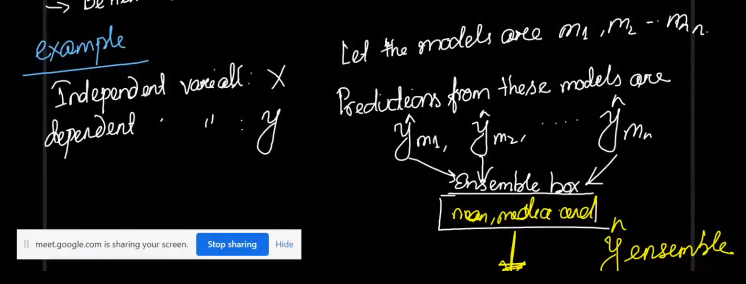 example
Independent variabl: X
dependent " : y
Let the models aree m1, m2 -- mn.
Predictions from these models are
ŷm1, ŷm2, .... ŷmn
Ensemble box
mean, media and
ŷ ensemble
meet.google.com is sharing your screen. Stop sharing Hide